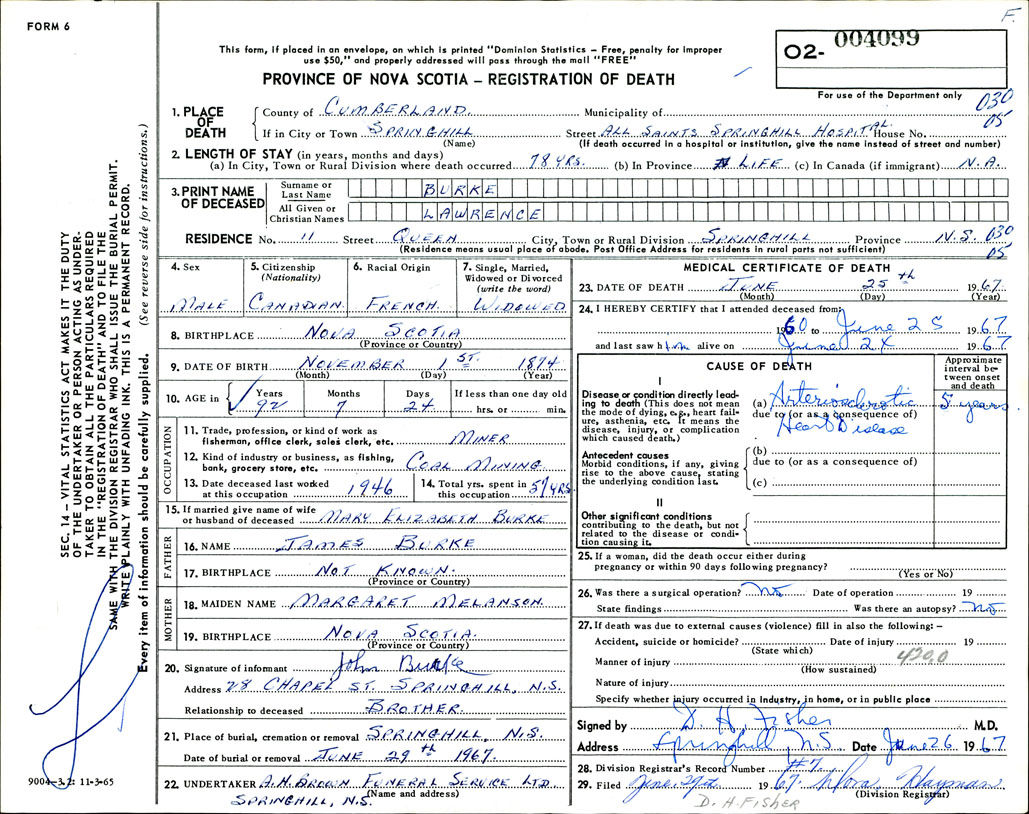 F.
FORM 6
This form, if placed in an envelope, on which is printed "Dominion Statistics – Free, penalty for improper
use $50," and properly addressed will pass through the mail "FREE"
O2- 004099
PROVINCE OF NOVA SCOTIA – REGISTRATION OF DEATH
For use of the Department only
030
05
1. PLACE OF DEATH
County of CUMBERLAND. Municipality of
If in City or Town SPRINGHILL Street ALL SAINTS SPRINGHILL HOSPITAL. House No.
(Name) (If death occurred in a hospital or institution, give the name instead of street and number)
2. LENGTH OF STAY (in years, months and days)
(a) In City, Town or Rural Division where death occurred 78 YRS. (b) In Province LIFE (c) In Canada (if immigrant) N.A.
3. PRINT NAME OF DECEASED
Surname or Last Name BURKE
All Given or Christian Names LAWRENCE
RESIDENCE No. 11 Street QUEEN City, Town or Rural Division SPRINGHILL Province N.S. 030
(Residence means usual place of abode. Post Office Address for residents in rural parts not sufficient) 05
4. Sex
MALE
5. Citizenship
(Nationality)
CANADIAN
6. Racial Origin
FRENCH
7. Single, Married,
Widowed or Divorced
(write the word)
WIDOWED
8. BIRTHPLACE NOVA SCOTIA
(Province or Country)
9. DATE OF BIRTH NOVEMBER 1ST. 1874
(Month) (Day) (Year)
10. AGE in Years Months Days If less than one day old
92 7 24 hrs. or min.
OCCUPATION
11. Trade, profession, or kind of work as
fisherman, office clerk, sales clerk, etc. MINER
12. Kind of industry or business, as fishing,
bank, grocery store, etc. COAL MINING
13. Date deceased last worked
at this occupation 1946
14. Total yrs. spent in
this occupation 57 YRS
15. If married give name of wife
or husband of deceased MARY ELIZABETH BURKE
FATHER
16. NAME JAMES BURKE
17. BIRTHPLACE NOT KNOWN.
(Province or Country)
MOTHER
18. MAIDEN NAME MARGARET MELANSON
19. BIRTHPLACE NOVA SCOTIA.
(Province or Country)
20. Signature of informant John Burke
Address 28 CHAPEL ST. SPRINGHILL, N.S.
Relationship to deceased BROTHER.
21. Place of burial, cremation or removal SPRINGHILL, N.S.
Date of burial or removal JUNE 29th 1967.
22. UNDERTAKER A.H. BROWN FUNERAL SERVICE LTD.
(Name and address)
SPRINGHILL, N.S.
MEDICAL CERTIFICATE OF DEATH
23. DATE OF DEATH JUNE 25th 1967.
(Month) (Day) (Year)
24. I HEREBY CERTIFY that I attended deceased from
1960 to June 25 1967
and last saw him alive on June 24 1967
CAUSE OF DEATH
Approximate
interval between onset
and death
I
Disease or condition directly leading to death (This does not mean
the mode of dying, e.g., heart failure, asthenia, etc. It means the
disease, injury, or complication
which caused death.)
(a) Arteriosclerotic 5 years
due to (or as a consequence of)
Heart Disease
Antecedent causes
Morbid conditions, if any, giving
rise to the above cause, stating
the underlying condition last.
(b)
due to (or as a consequence of)
(c)
II
Other significant conditions
contributing to the death, but not
related to the disease or condition causing it.
25. If a woman, did the death occur either during
pregnancy or within 90 days following pregnancy?
(Yes or No)
26. Was there a surgical operation? No Date of operation 19
State findings Was there an autopsy? No
27. If death was due to external causes (violence) fill in also the following: –
Accident, suicide or homicide? Date of injury 19
(State which)
420.0
Manner of injury
(How sustained)
Nature of injury
Specify whether injury occurred in industry, in home, or in public place
Signed by D. H. Fisher M.D.
Address Springhill, N.S Date June 26 1967
28. Division Registrar's Record Number #7
29. Filed June 29th 1967 Hayman
(Division Registrar)
D. H. FISHER
SEC. 14 – VITAL STATISTICS ACT MAKES IT THE DUTY
OF THE UNDERTAKER OR PERSON ACTING AS UNDER-
TAKER TO OBTAIN ALL THE PARTICULARS REQUIRED
IN THE "REGISTRATION OF DEATH" AND TO FILE THE
SAME WITH THE DIVISION REGISTRAR WHO SHALL ISSUE THE BURIAL PERMIT.
WRITE PLAINLY WITH UNFADING INK. THIS IS A PERMANENT RECORD.
Every item of information should be carefully supplied. (See reverse side for instructions.)
9004-3.2: 11-3-65